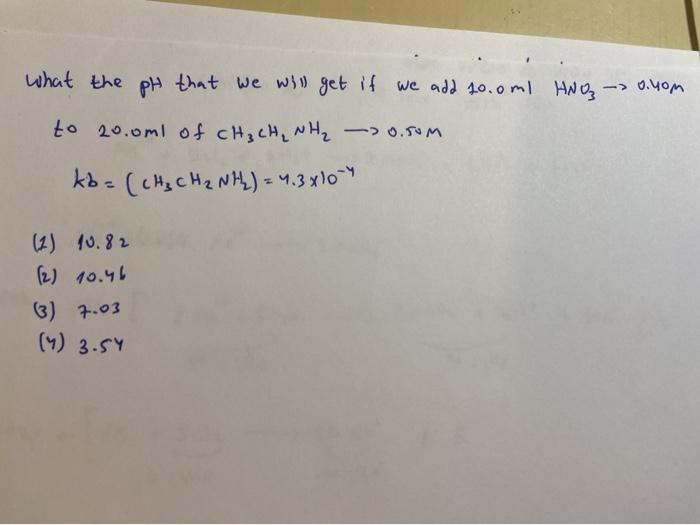 what the pH that we will get if we add 10.0 ml HNO3 -> 0.40M
to 20.0ml of CH3CH2NH2 -> 0.50M
kb = (CH3CH2NH2) = 4.3x10-4
(1) 10.82
(2) 10.46
(3) 7.03
(4) 3.54